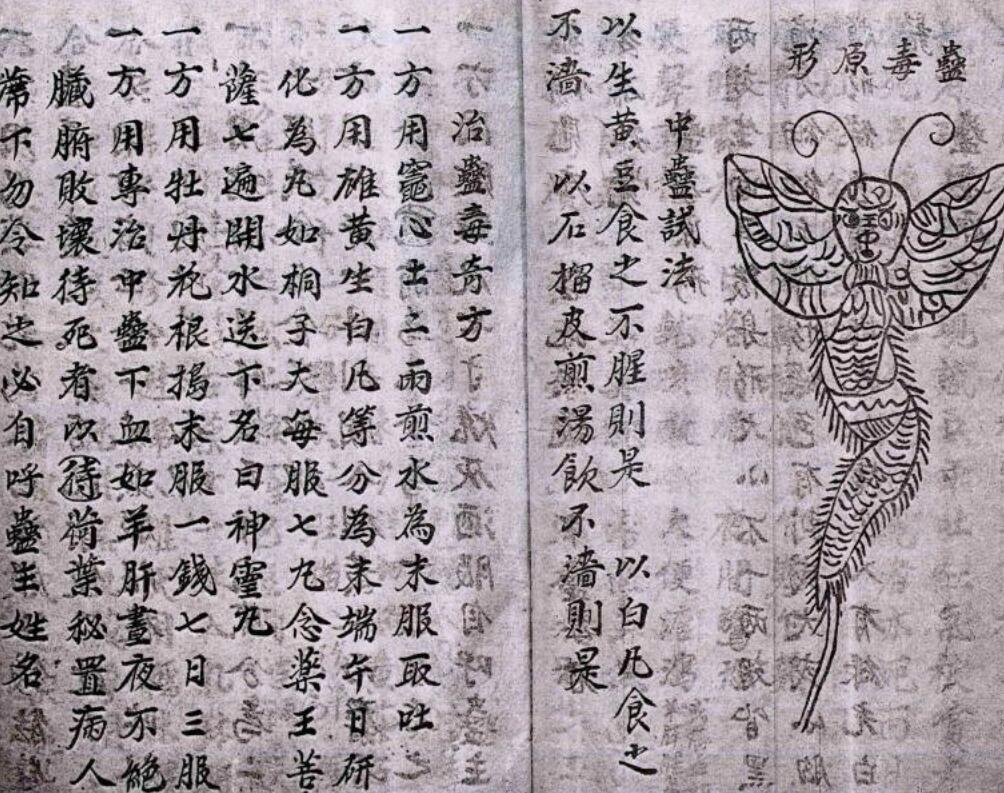 蠱毒原形
中蠱試法
以生黄豆食之不腥則是 以白凡食之
不濇 以石榴皮煎湯飲不濇則是
治蠱毒奇方
一方用竈心土二兩煎水為末服取吐
一方用雄黄生白凡等分為末端午日研
化為丸如桐子大每服七丸念藥王菩
薩七遍開水送下名曰神靈丸
一方用牡丹花根搗末服一錢七日三服
一方用專治中蠱下血如羊肝晝夜不絶
臓腑敗壞待死者以待荷葉秘置病人
蓆下勿令知之必自呼蠱生姓名